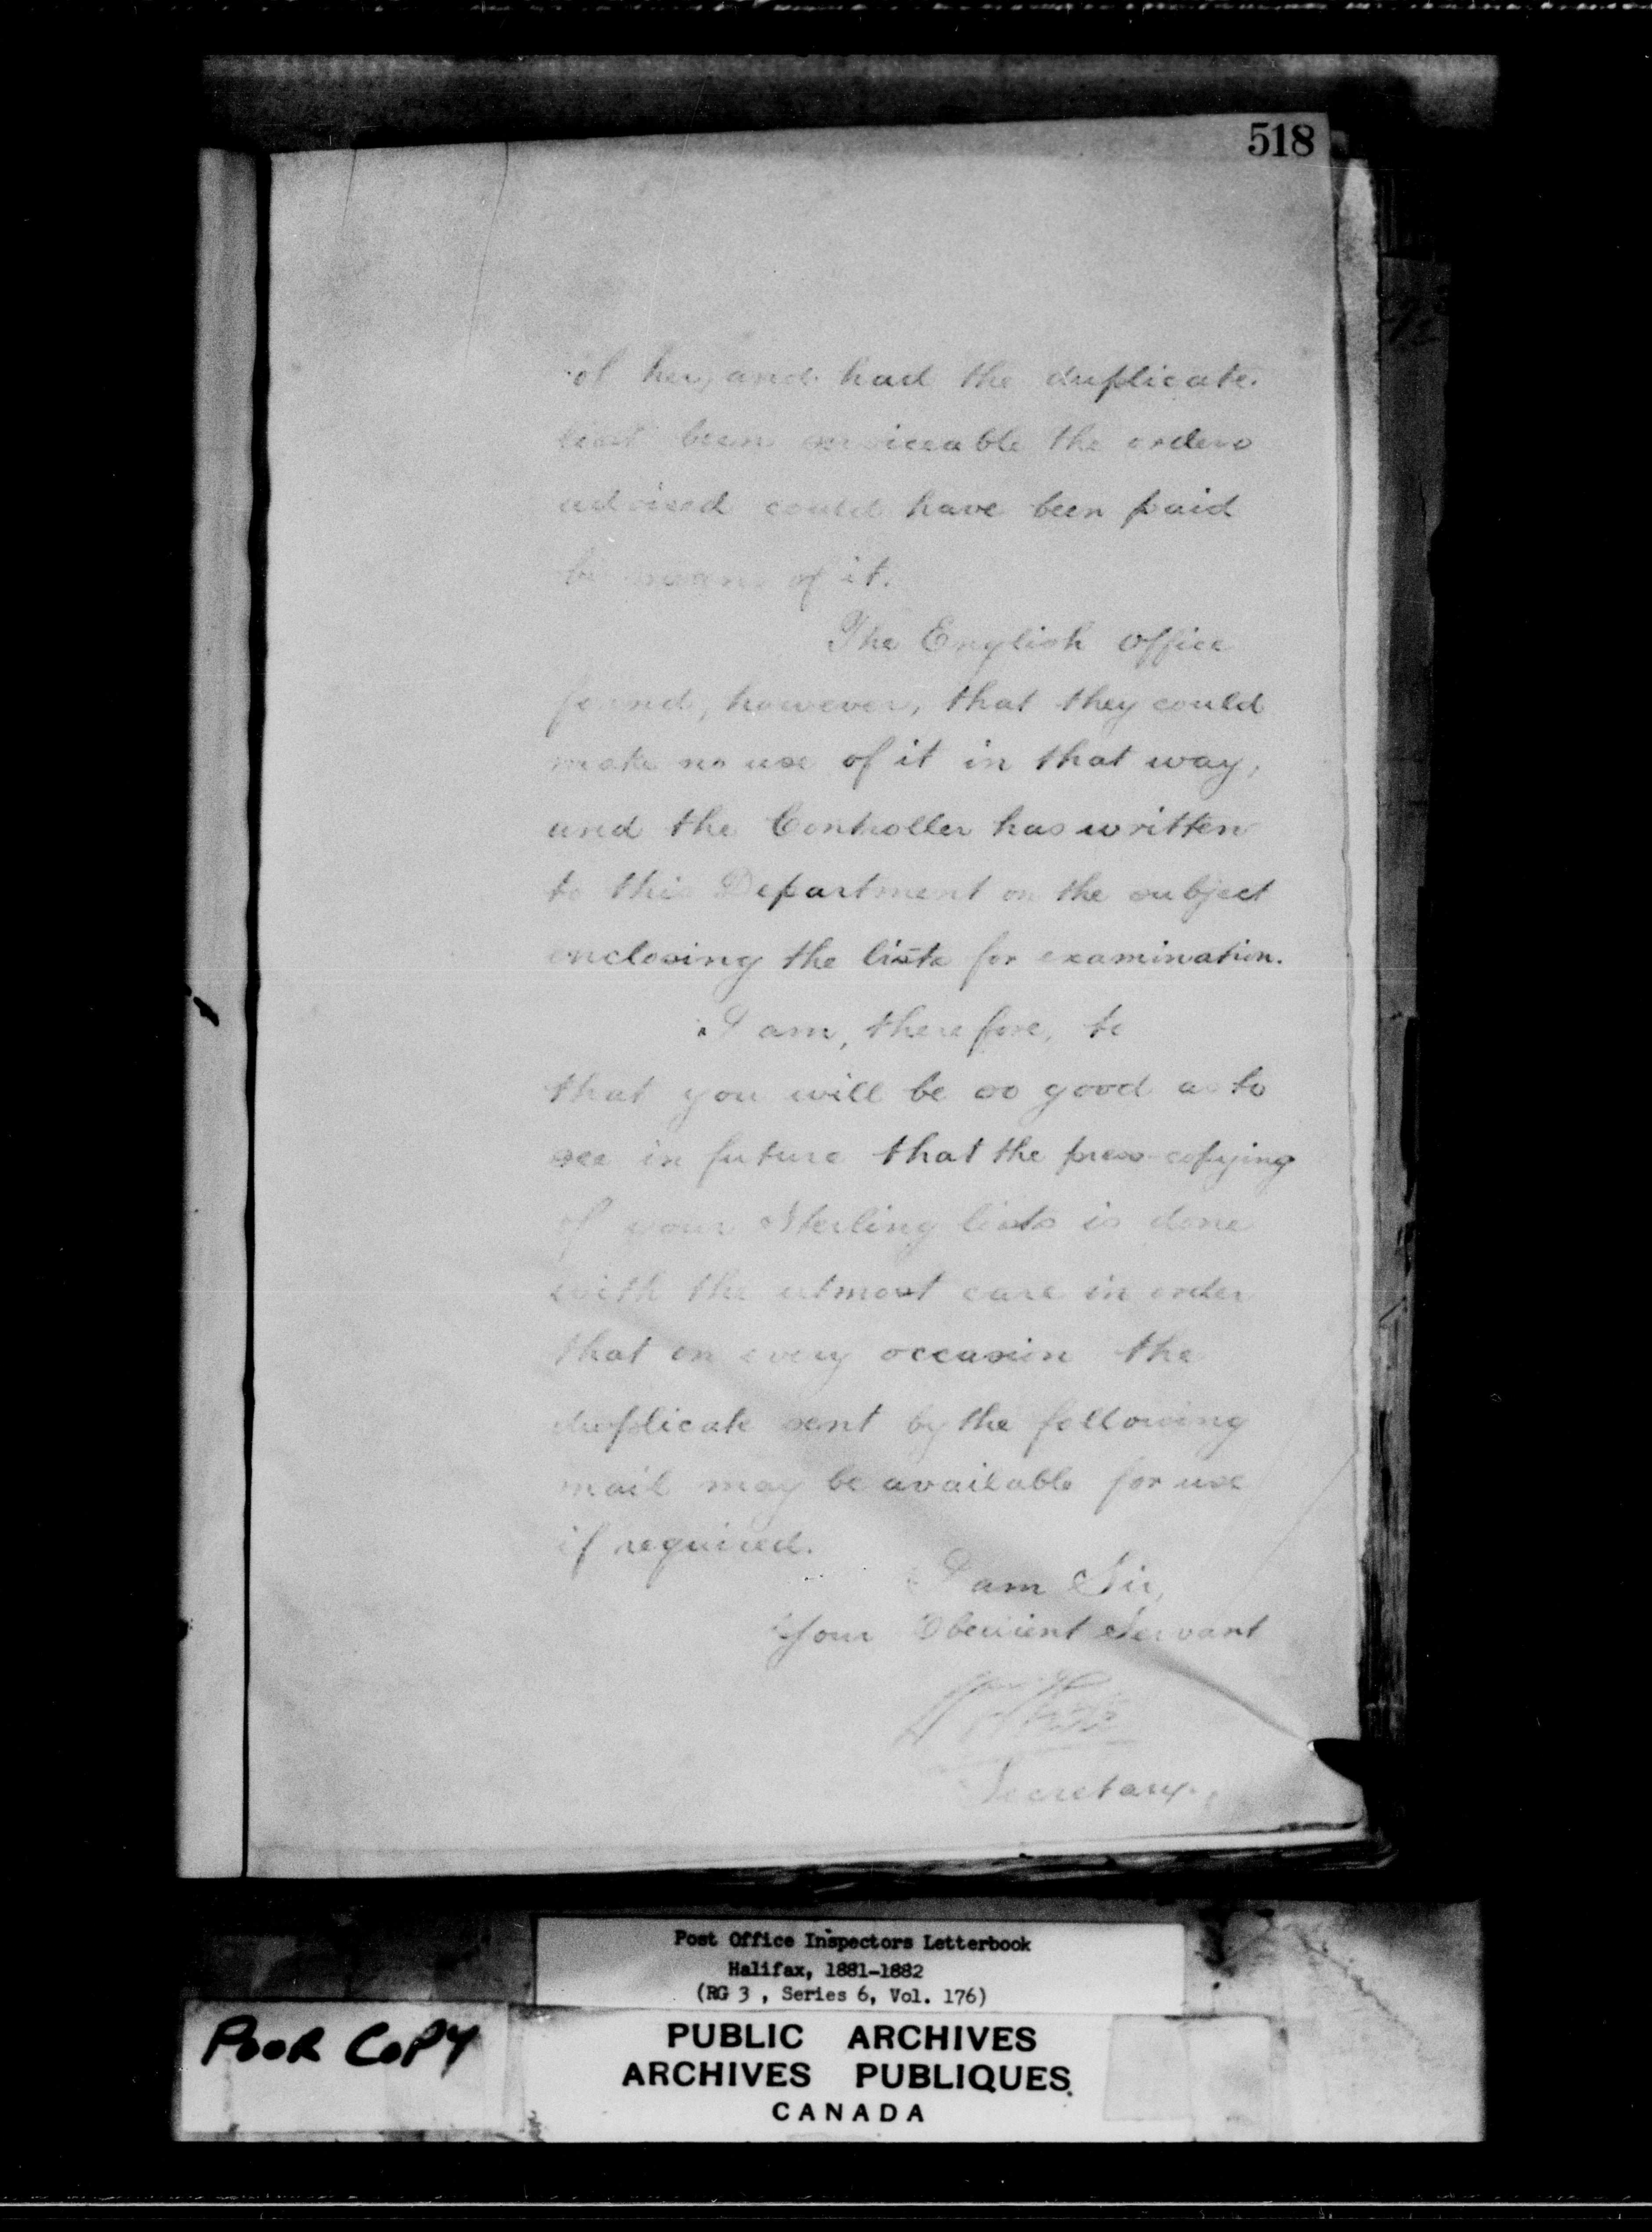 518
of her, and had the duplicate
list been serviceable the orders
advised could have been paid
by means of it.
The English Office
found, however, that they could
make no use of it in that way,
and the Controller has written
to this Department on the subject
enclosing the lists for examination.
I am, therefore, to
that you will be so good as to
see in future that the press-copying
of your Sterling lists is done
with the utmost care in order
that on every occasion the
duplicate sent by the following
mail may be available for use
if required.
I am Sir,
Your Obedient Servant
Secretary.
Post Office Inspectors Letterbook
Halifax, 1881-1882
(RG 3 , Series 6, Vol. 176)
POOR COPY
PUBLIC ARCHIVES
ARCHIVES PUBLIQUES
CANADA